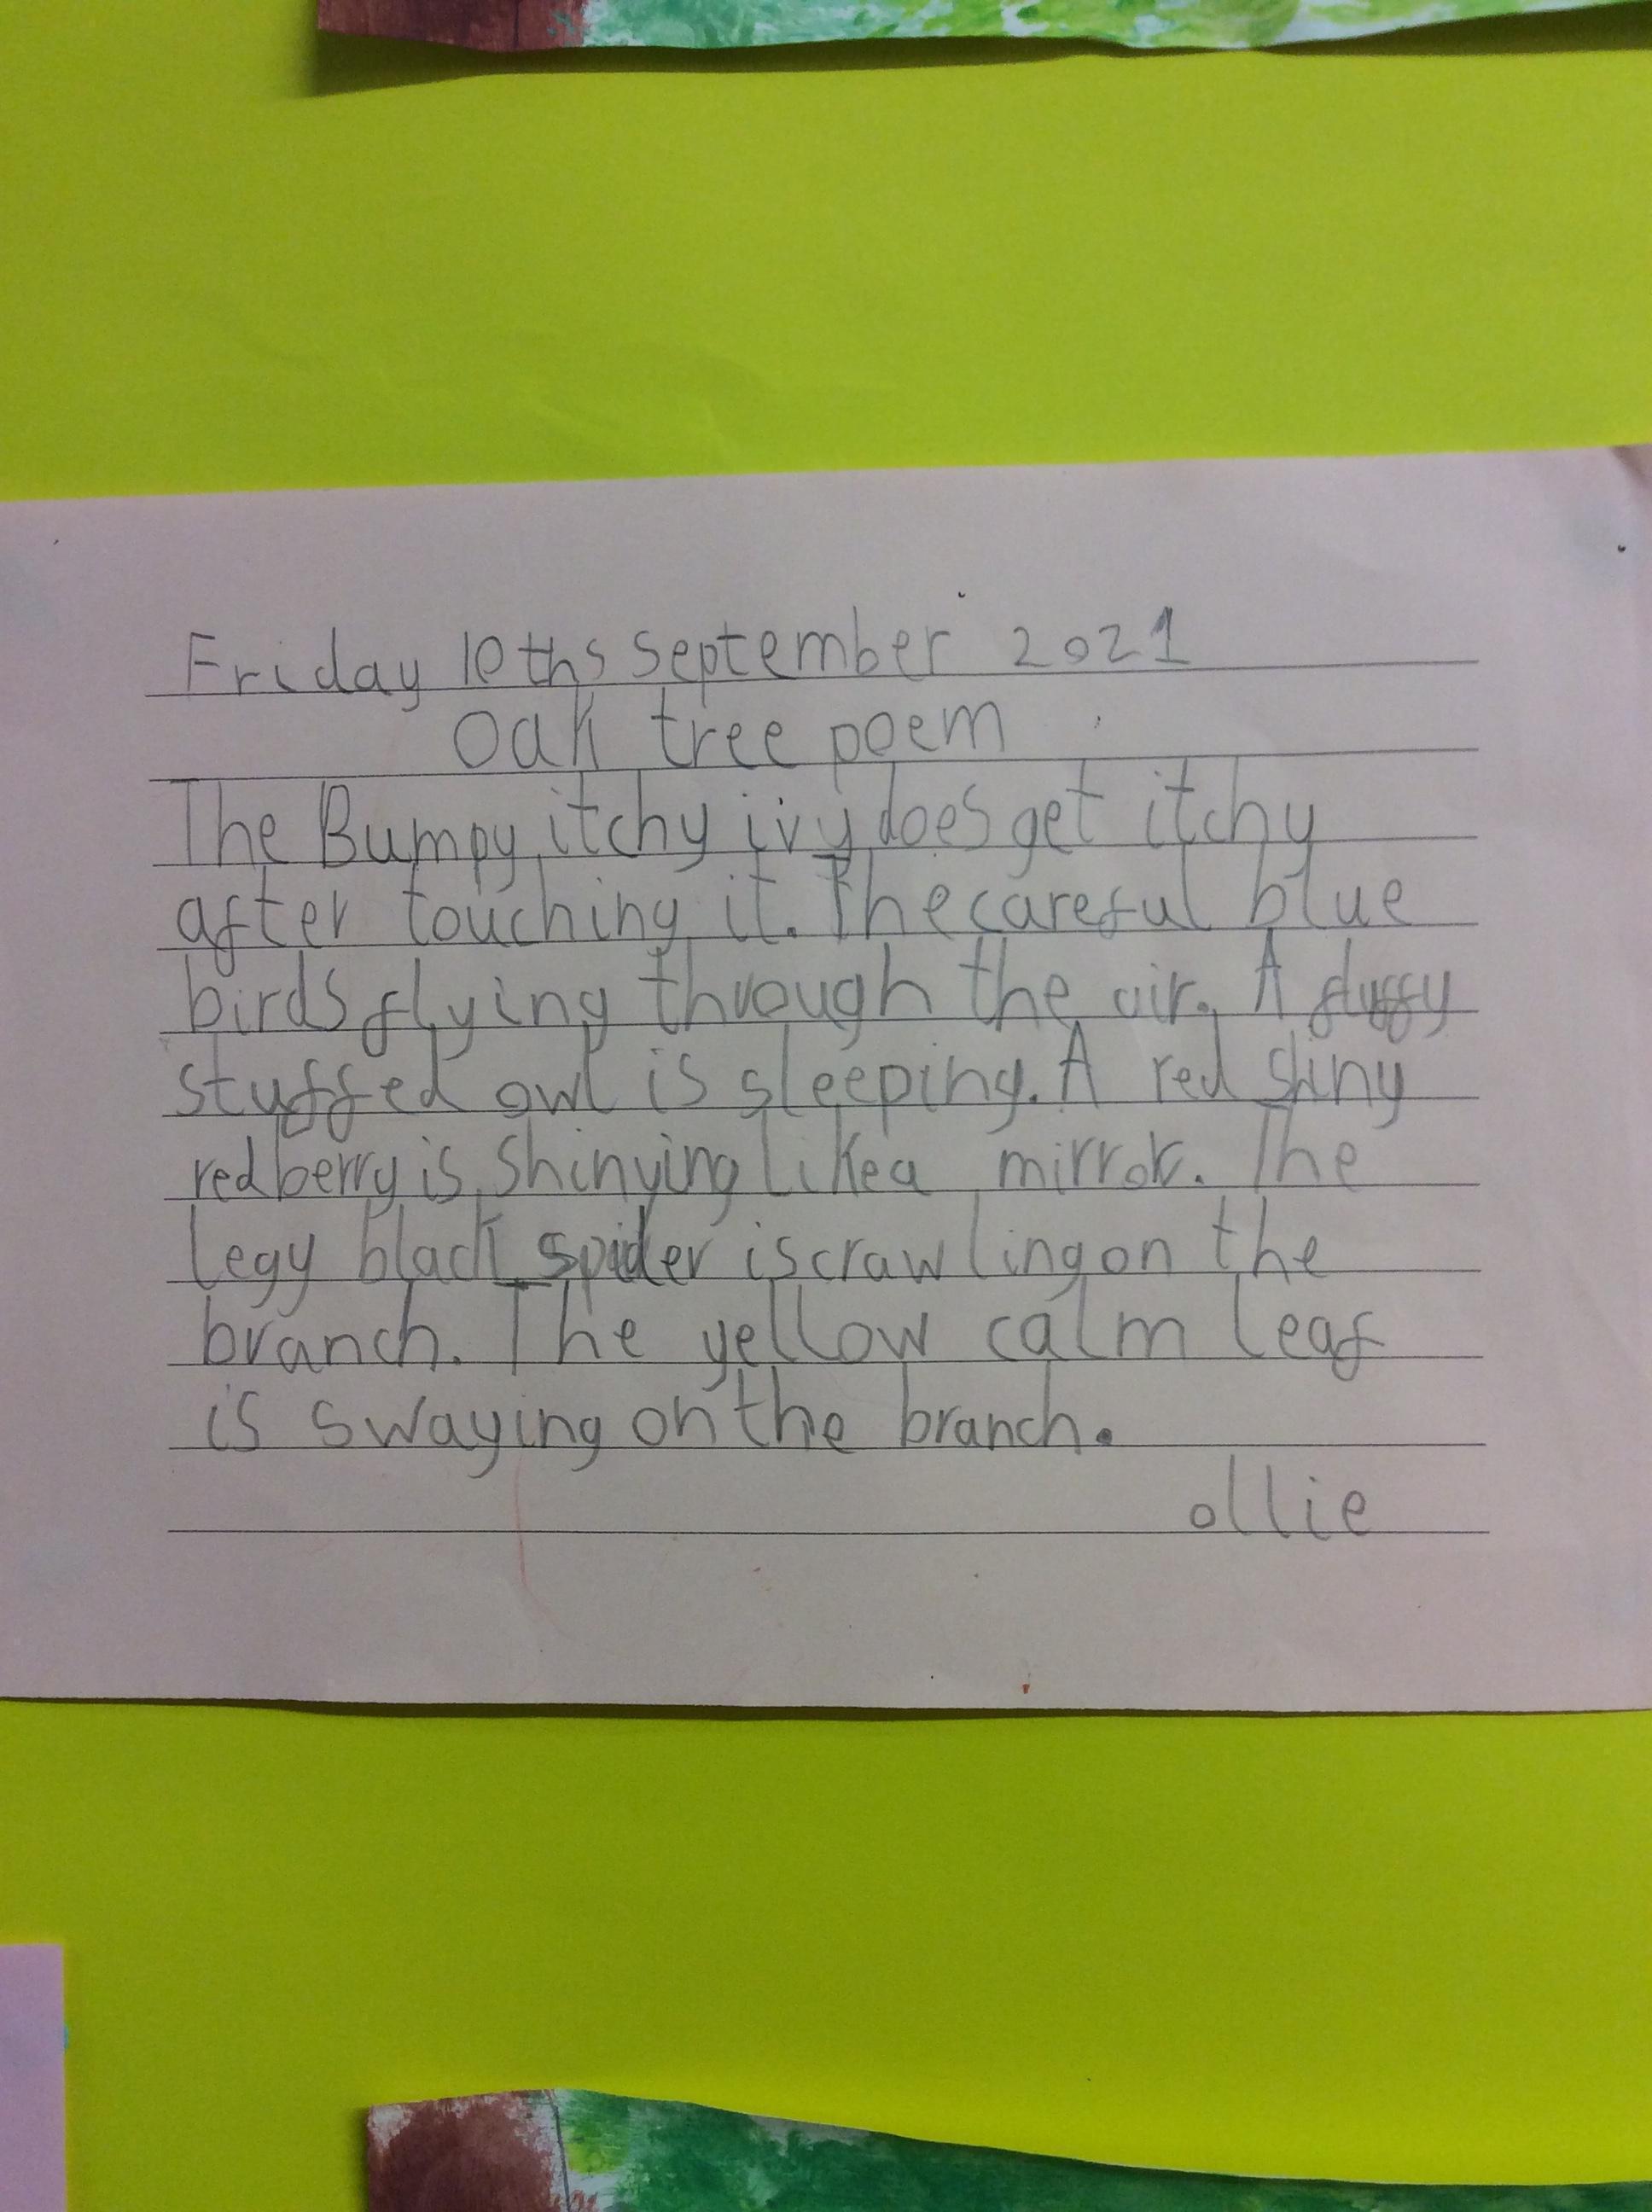 Friday 10ths september 2021
Oak tree poem
The Bumpy itchy ivy does get itchy
after touching it. The careful blue
birds flying through the air. A fluffy
stuffed owl is sleeping. A red shiny
red berry is shinying like a mirror. The
legy black spider is crawling on the
branch. The yellow calm leaf
is swaying on the branch.
ollie